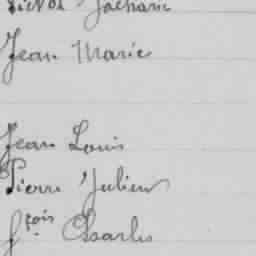 Victor Zacharie
Jean Marie
Jean Louis
Pierre Julien
fçois Charles